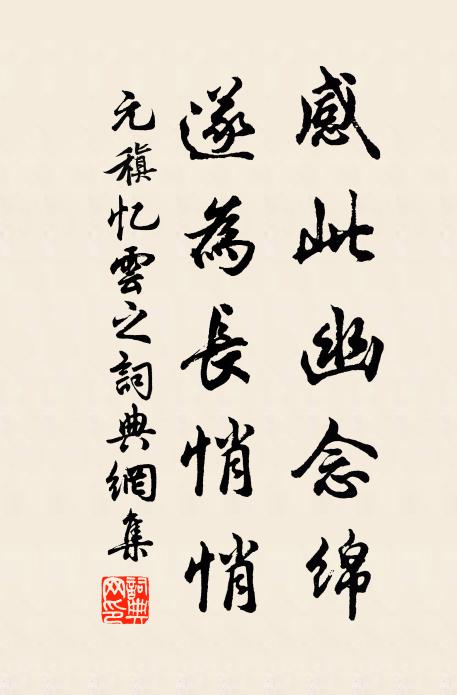 感此幽念綿
遂為長悄悄
元稹忆雲之詞典網集
詞典網印